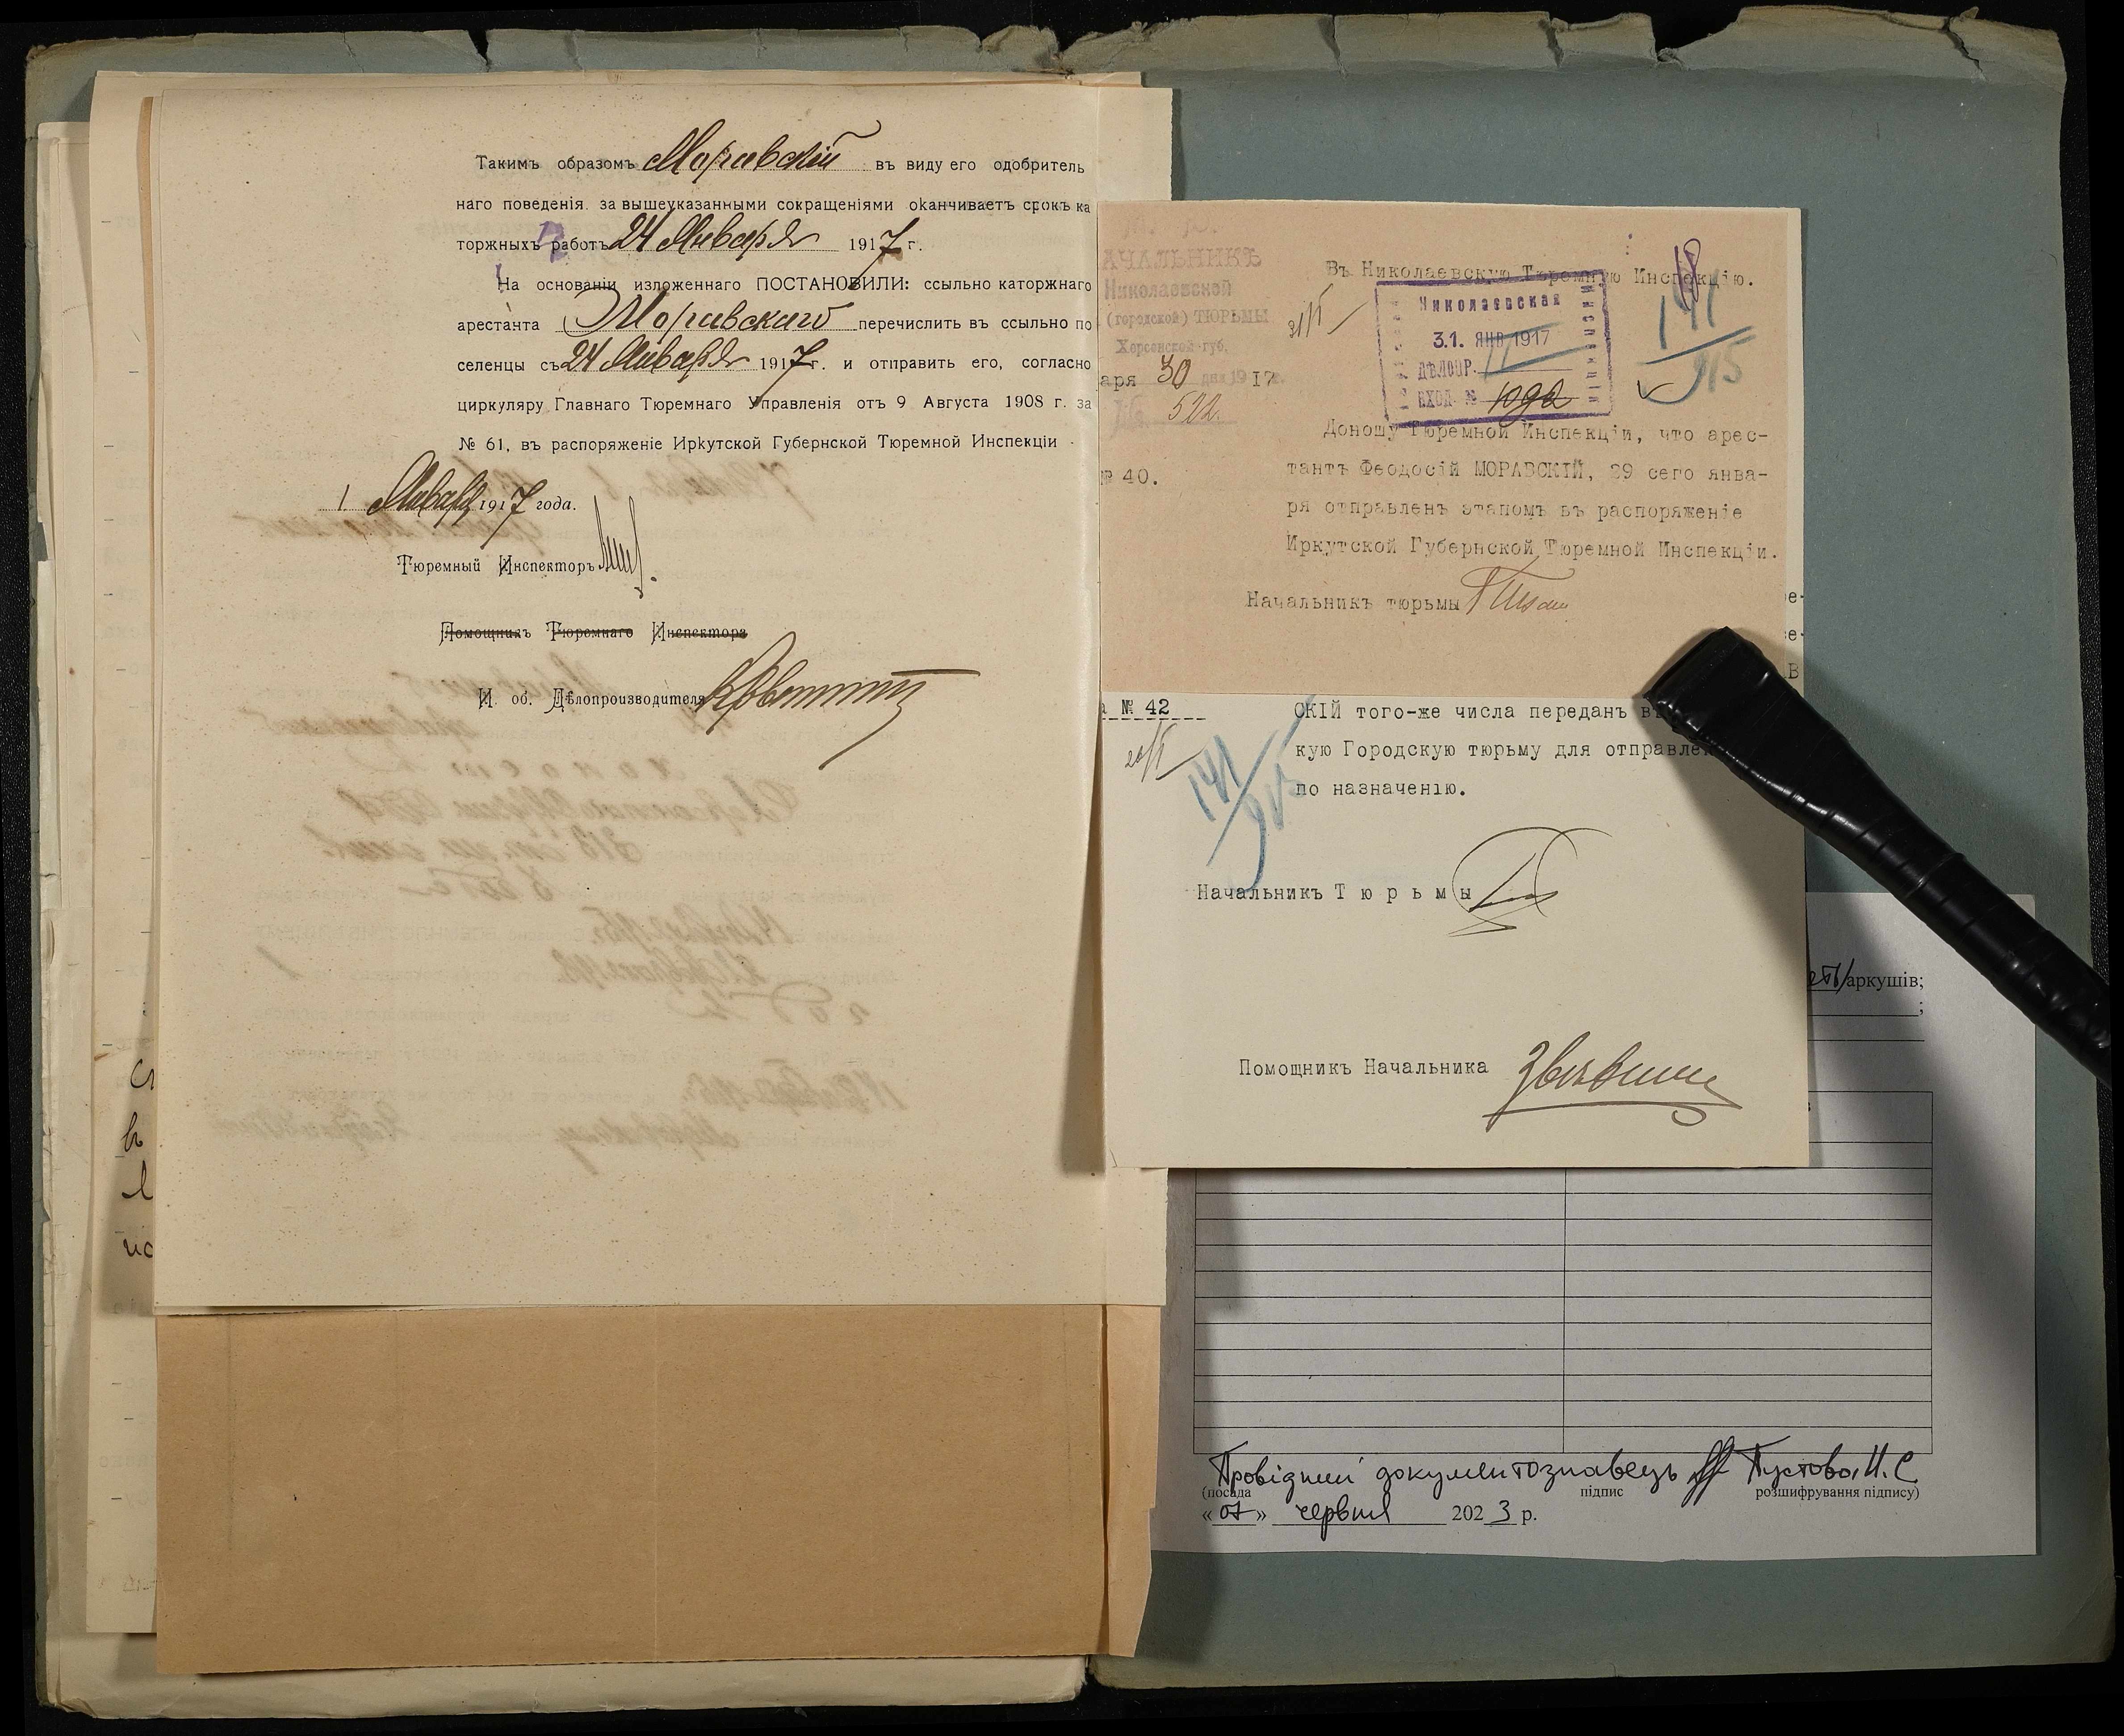 Такимъ образомъ Моравскій въ виду его одобритель
наго поведенія за вышеуказанными сокращеніями оканчиваетъ срокъ ка
торжныхъ работъ 24 Января 1917 г.
На основаніи изложеннаго ПОСТАНОВИЛИ: ссыльно каторжнаго
арестанта Моравскаго перечислить въ ссыльно по
селенцы съ 24 Января 1917 г. и отправить его, согласно
циркуляру Главнаго Тюремнаго Управленія отъ 9 Августа 1908 г. за
№ 61, въ распоряженіе Иркутской Губернской Тюремной Инспекціи
1 Января 1917 года.
Тюремный Инспекторъ
Помощникъ Тюремнаго Инспектора
И об. Дѣлопроизводителя
АЧАЛЬНИКЪ
Николаевской
(городской) ТЮРЬМЫ
Херсонской губ.
аря 30 дня 1917
№ 522.
№ 40.
Въ Николаевскую Тюремную Инспекцію.
Николаевская
31. ЯНВ 1917
ДѢЛОПР.
ВХОД. №
Инспекція
141
915
Доношу Тюремной Инспекціи, что арес-
тантъ Феодосій МОРАВСКІЙ, 29 сего янва-
ря отправленъ этапомъ въ распоряженіе
Иркутской Губернской Тюремной Инспекціи.
Начальникъ тюрьмы
№ 42
СКІЙ того-же числа переданъ въ
кую Городскую тюрьму для отправле
по назначенію.
141
915
Начальникъ Тюрьмы
Помощникъ Начальника
аркушів;
Провідний документознавець Пустова Н.С
(посада підпис розшифрування підпису)
«07» червня 2023 р.